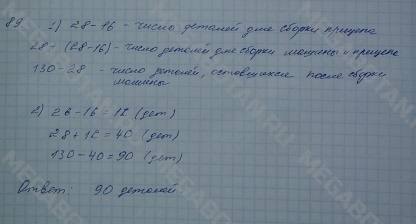 89. 1) 28-16 - число деталей для сборки прицепа
28-(28-16) - число деталей для сборки машины и прицепа
130-28 - число деталей, оставшихся после сборки
машины
2) 28-16=12 (дет)
28+12=40 (дет)
130-40=90 (дет)
Ответ: 90 деталей